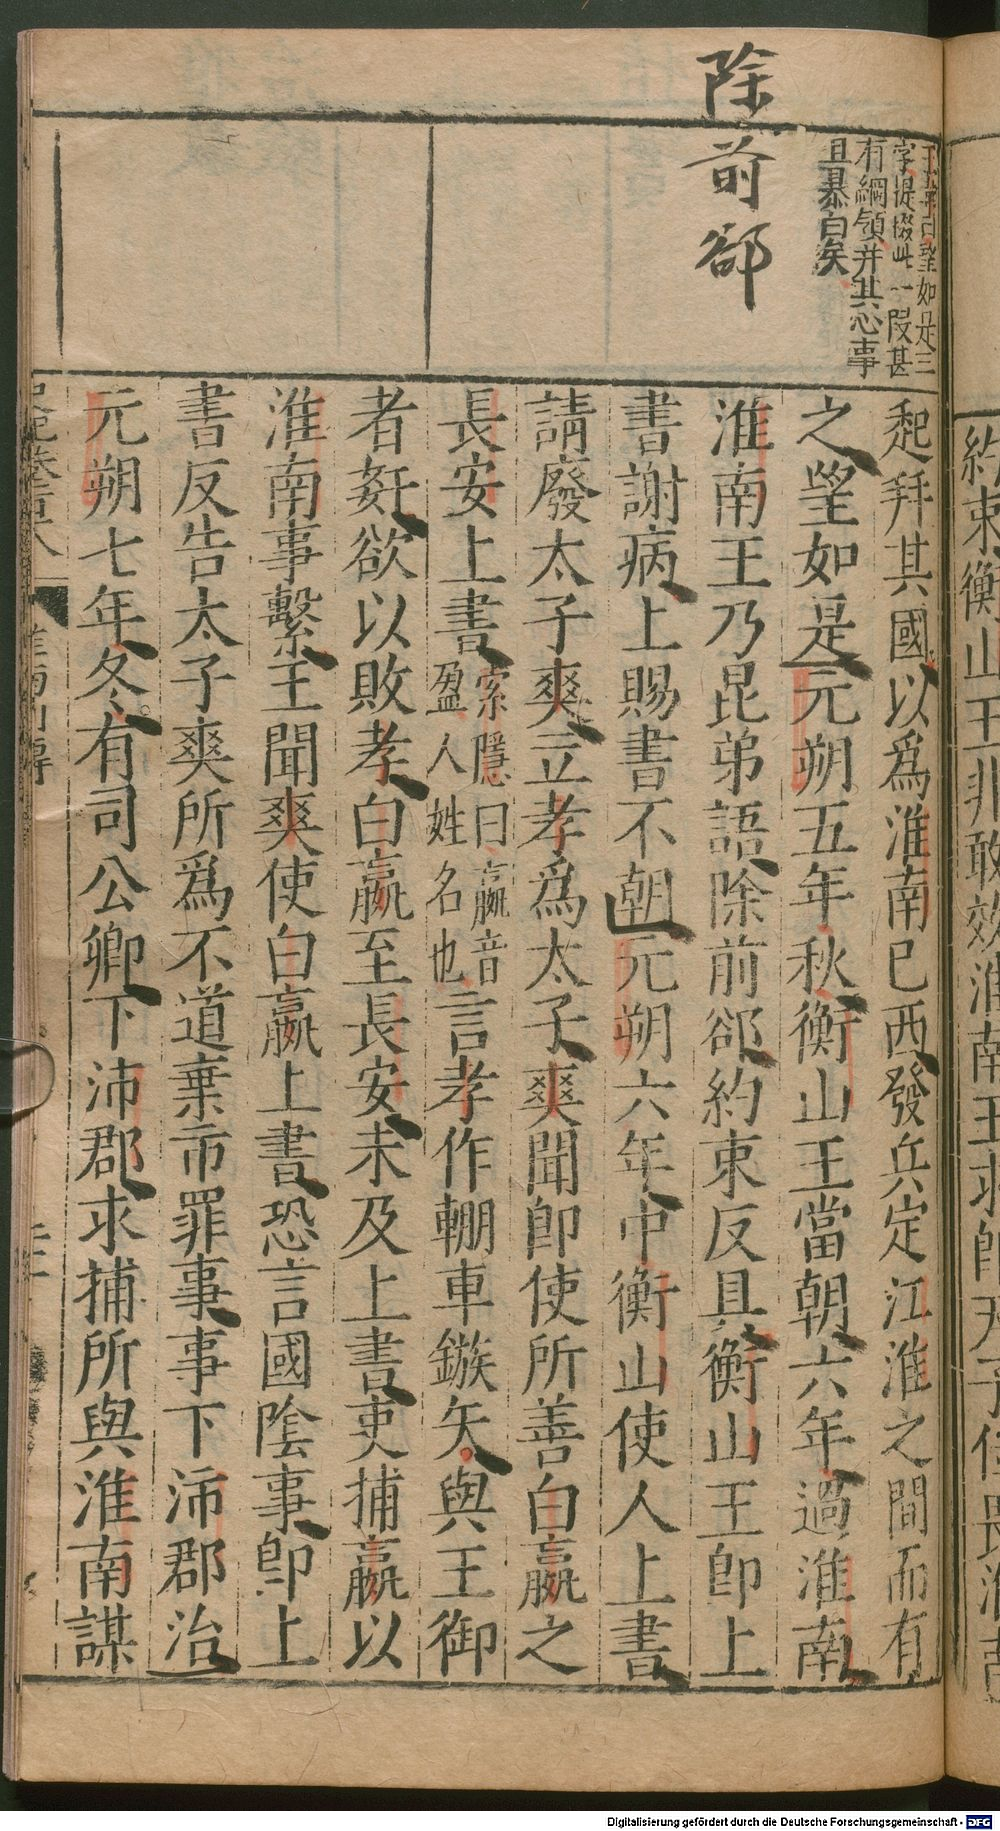 約束衡山王非敢效淮南王求即天子位畏淮南
王維楨曰望如是三
字提掇此一段甚
有綱領并其心事
且暴白矣
除前郤
起并其國以爲淮南已西發兵定江淮之間而有
之望如是元朔五年秋衡山王當朝六年過淮南
淮南王乃昆弟語除前郤約束反具衡山王卽上
書謝病上賜書不朝元朔六年中衡山使人上書
請廢太子爽立孝爲太子爽聞卽使所善白嬴之
長安上書索隱曰嬴音盈人姓名也言孝作輣車鏃矢與王御
者姧欲以敗孝白嬴至長安未及上書吏捕嬴以
淮南事繫王聞爽使白嬴上書恐言國陰事卽上
書反告太子爽所爲不道棄市罪事事下沛郡治
元朔七年冬有司公卿下沛郡求捕所與淮南謀
史記卷百十八
淮南列傳
Digitalisierung gefördert durch die Deutsche Forschungsgemeinschaft - DFG